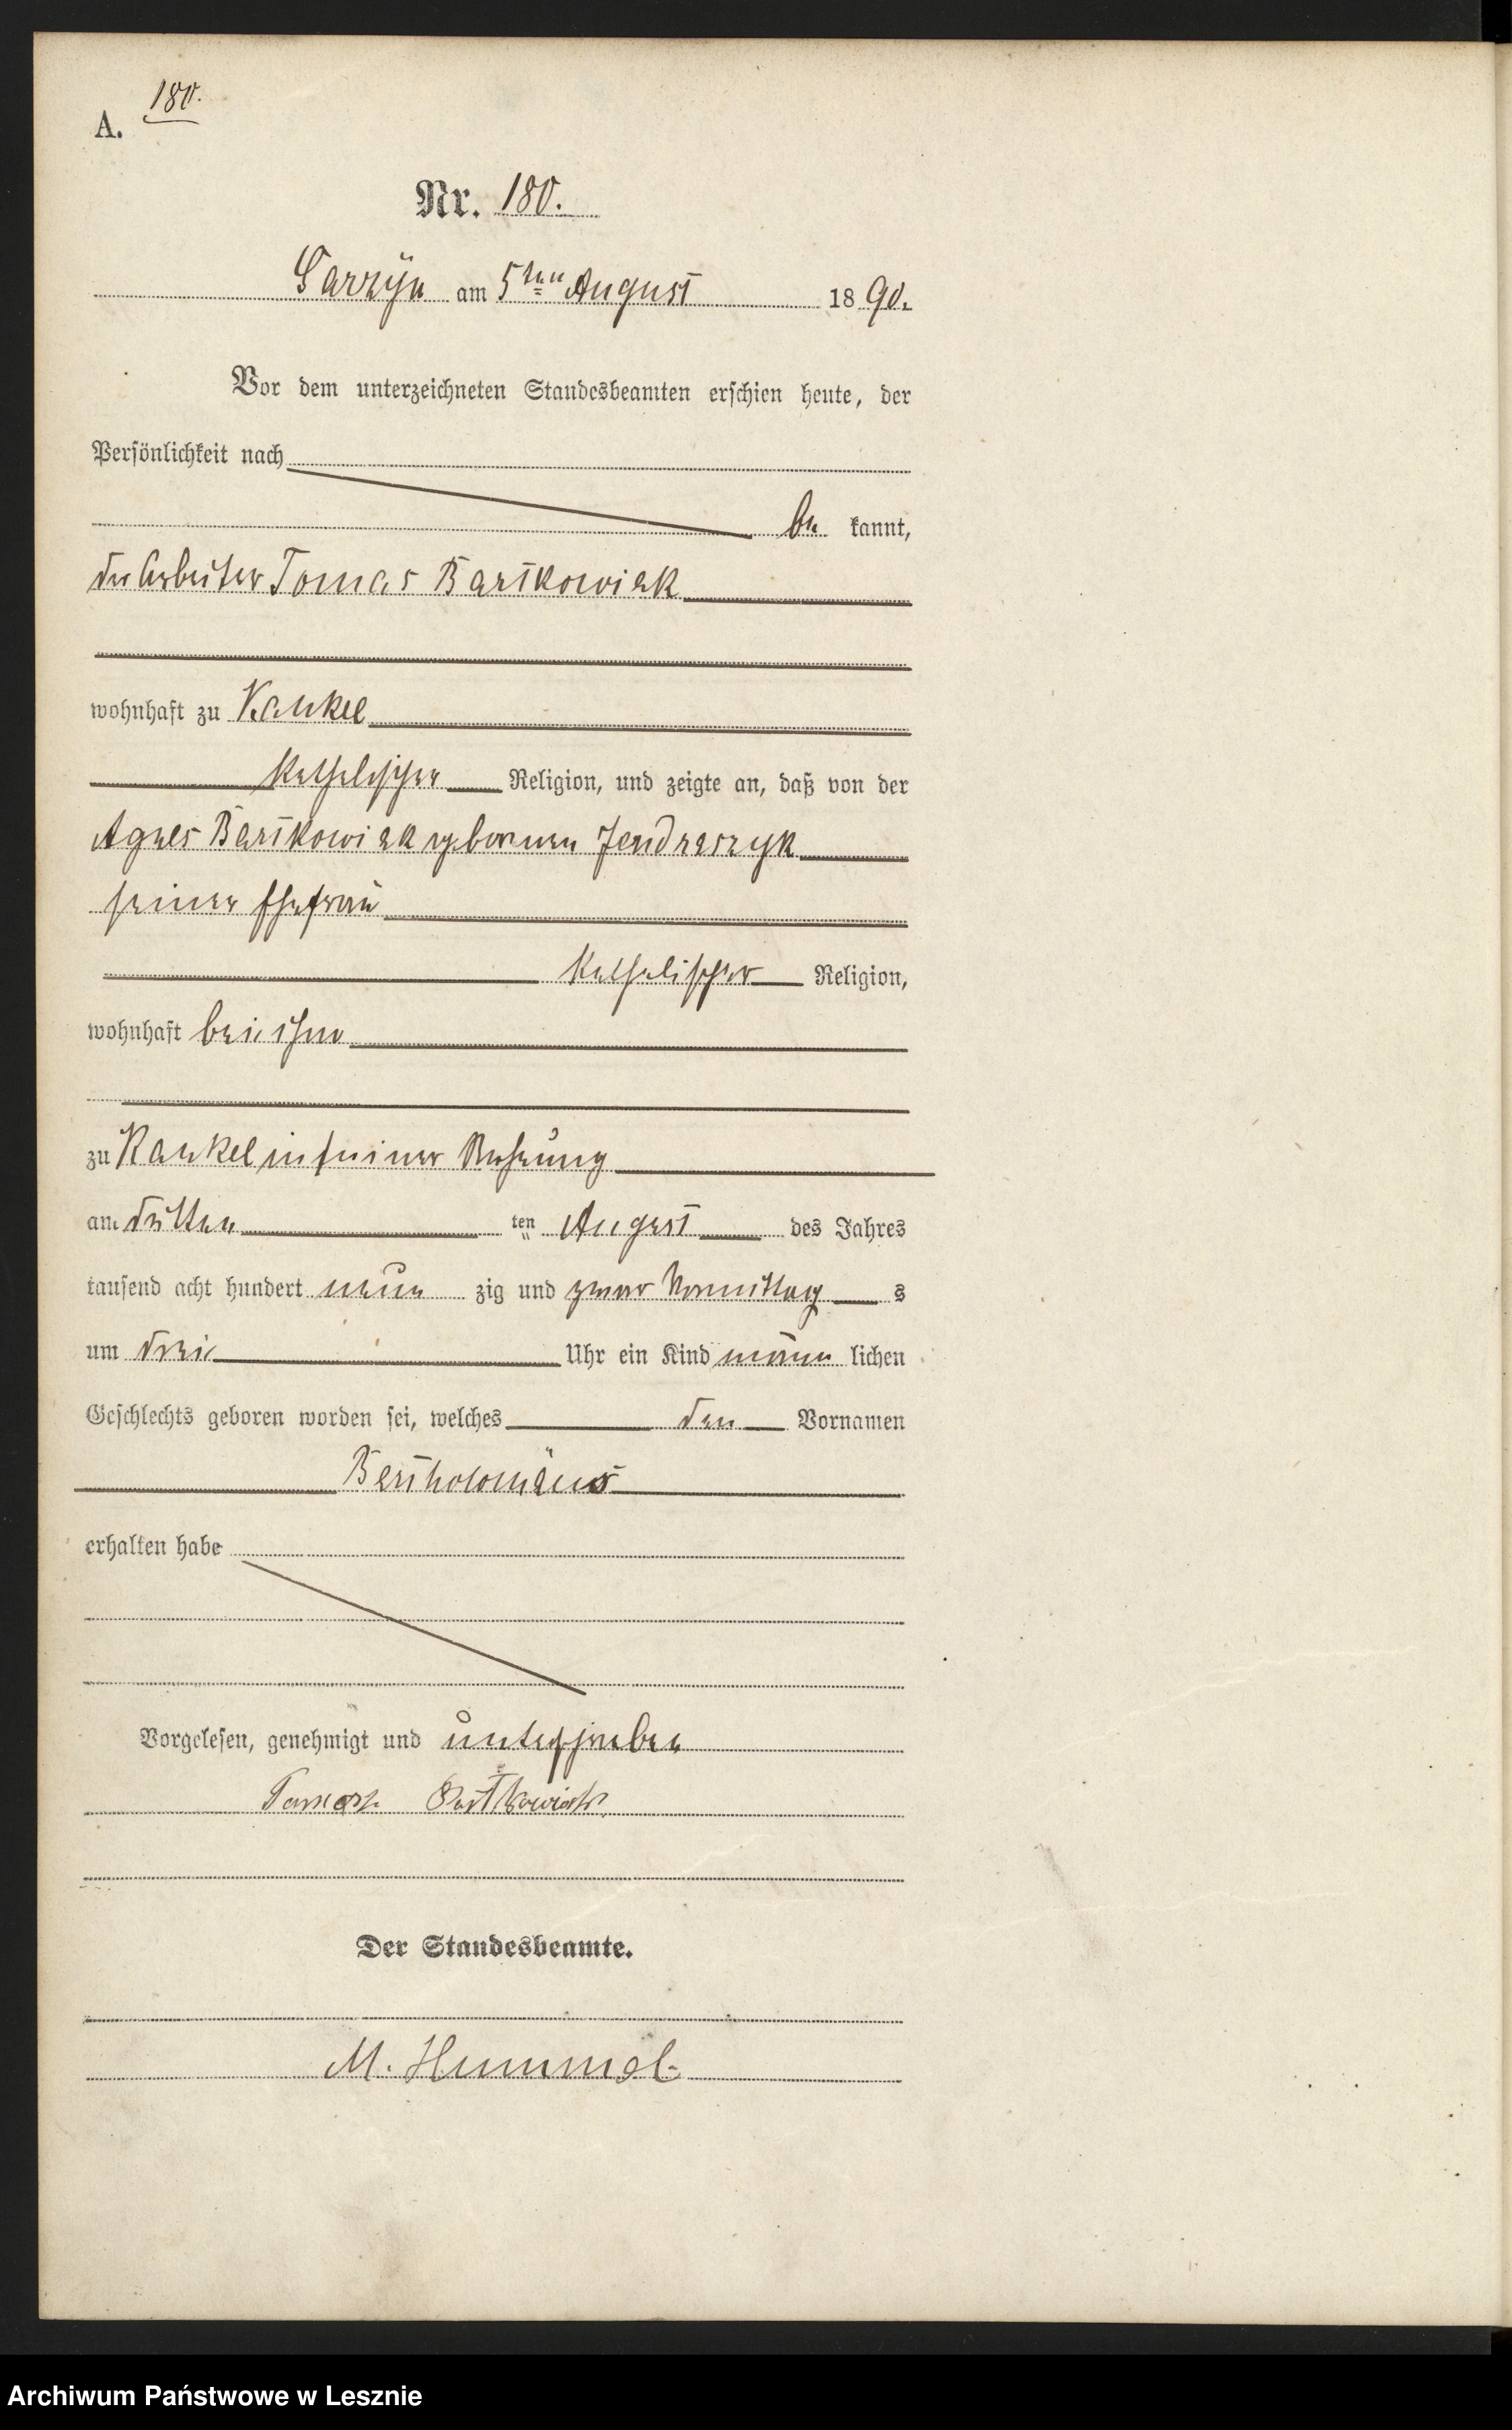 180.
A.
Nr. 180.
Garzyn am 5ten August 1890.
Vor dem unterzeichneten Standesbeamten erschien heute, der
Persönlichkeit nach
be kannt,
der Arbeiter Tomas Bartkowiak
wohnhaft zu Kankel
katholischer Religion, und zeigte an, daß von der
Agnes Bartkowiak geborenen Jendraszyk
seiner Ehefrau
katholischer Religion,
wohnhaft bei ihm
zu Kankel in seiner Wohnung
am dritten ten August des Jahres
tausend acht hundert neun zig und zwar Vormittag s
um drei Uhr ein Kind männ lichen
Geschlechts geboren worden sei, welches den Vornamen
Bartholomäus
erhalten habe
Vorgelesen, genehmigt und unterschrieben
Tomasz Bartkowiak
Der Standesbeamte.
M. Hummel
Archiwum Państwowe w Lesznie